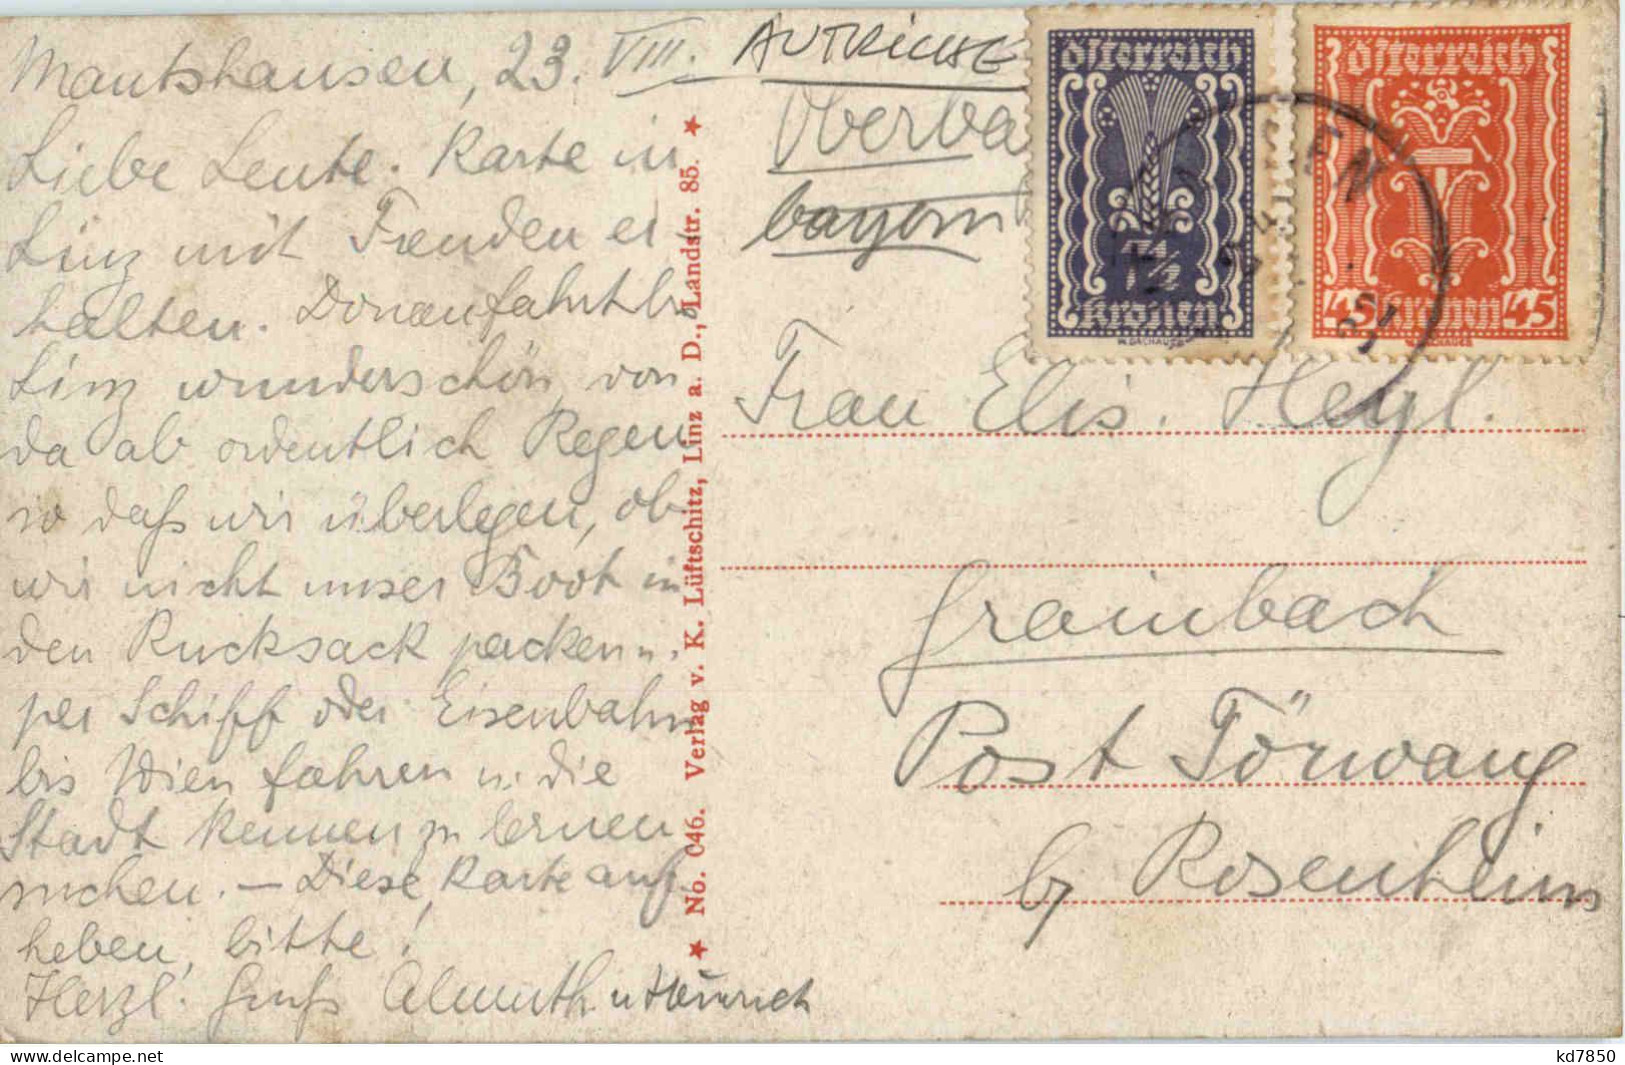 Mautshausen, 23. VIII.
Liebe Leute. Karte in
Linz mit Freuden er-
halten. Donaufahrt b.
Linz wunderschön, von
da ab ordentlich Regen
so daß wir überlegen, ob
wir nicht unser Boot in
den Rucksack packen u.
per Schiff oder Eisenbahn
bis Wien fahren u. die
Stadt kennen zu lernen
suchen. — Diese Karte auf-
heben, bitte!
Herzl. Gruß Almuth u Heinrich
★ No. 046. Verlag v. K. Lüftschitz, Linz a. D., Landstr. 85. ★
AUTRICHE
Oberba
bayern
Österreich
7½ 7½
Kronen
W. DACHAUER
Österreich
45 Kronen 45
W. DACHAUER
Frau Elis. Heyl.
Grainbach
Post Törwang
by Rosenheim
kd7850
www.delcampe.net